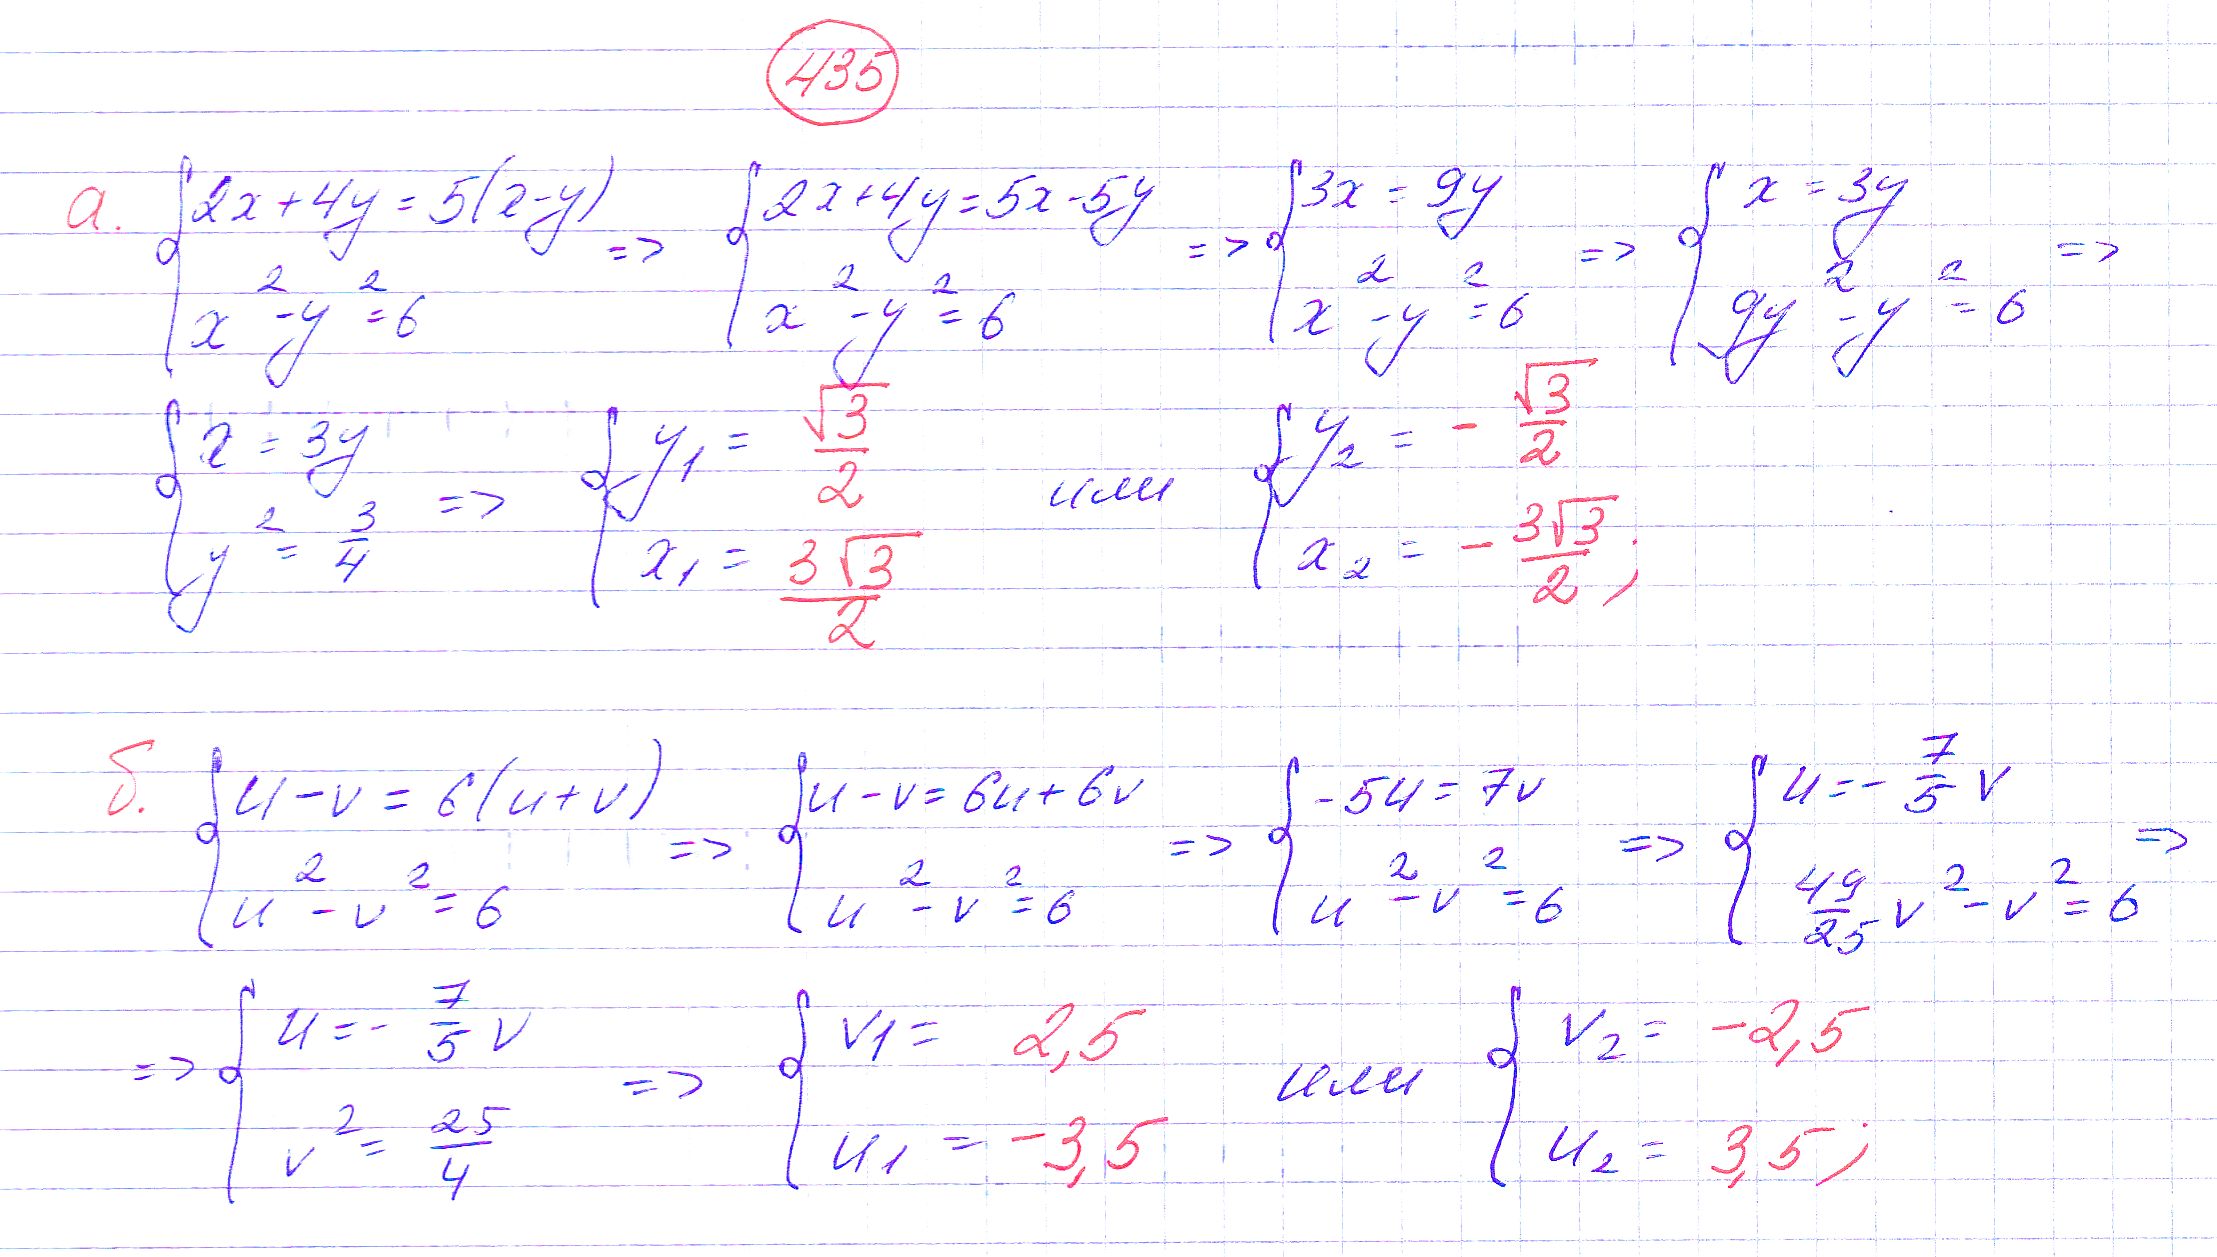 435
а. { 2x+4y=5(x-y) ; x²-y²=6 => { 2x+4y=5x-5y ; x²-y²=6 => { 3x=9y ; x²-y²=6 => { x=3y ; 9y²-y²=6 =>
{ x=3y ; y²=3/4 => { y₁=√3/2 ; x₁=3√3/2 или { y₂=-√3/2 ; x₂=-3√3/2;
б. { u-v=6(u+v) ; u²-v²=6 => { u-v=6u+6v ; u²-v²=6 => { -5u=7v ; u²-v²=6 => { u=-7/5 v ; 49/25 v²-v²=6 =>
=> { u=-7/5 v ; v²=25/4 => { v1=2,5 ; u1=-3,5 или { v₂=-2,5 ; u₂=3,5;